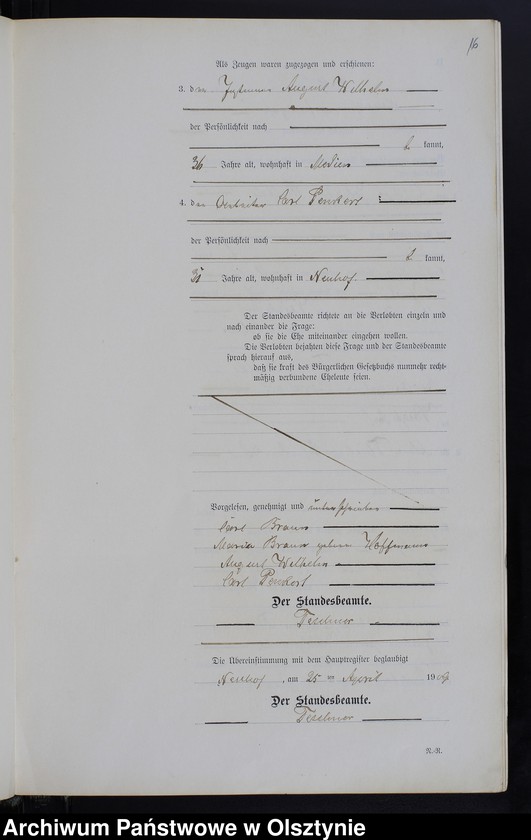 16
Als Zeugen waren zugezogen und erschienen:
3. der August Wilhelm
der Persönlichkeit nach
kannt,
36 Jahre alt, wohnhaft in Medien
4. der Arbeiter Carl Penkert
der Persönlichkeit nach
kannt,
Jahre alt, wohnhaft in Neuhof
Der Standesbeamte richtete an die Verlobten einzeln und
nach einander die Frage:
ob sie die Ehe miteinander eingehen wollen.
Die Verlobten bejahten diese Frage und der Standesbeamte
sprach hierauf aus,
daß sie kraft des Bürgerlichen Gesetzbuchs nunmehr recht-
mäßig verbundene Eheleute seien.
Vorgelesen, genehmigt und unterschrieben
Carl Braun
Maria Braun geborene Hoffmann
August Wilhelm
Carl Penkert
Der Standesbeamte.
Die Übereinstimmung mit dem Hauptregister beglaubigt
Neuhof, am 25 ten April 19
Der Standesbeamte.
N.-R.
Archiwum Państwowe w Olsztynie